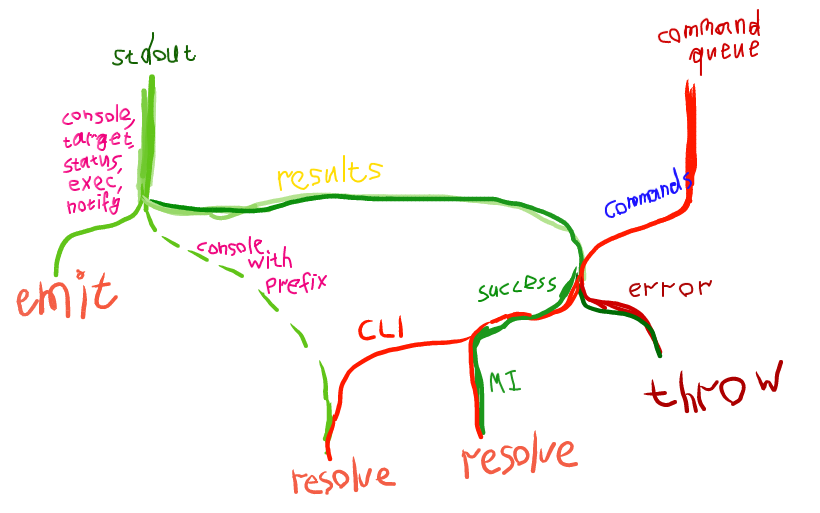 stdout
command
queue
console,
target,
status,
exec,
notify
results
commands
console
with
prefix
emit
success
error
CLI
MI
throw
resolve
resolve